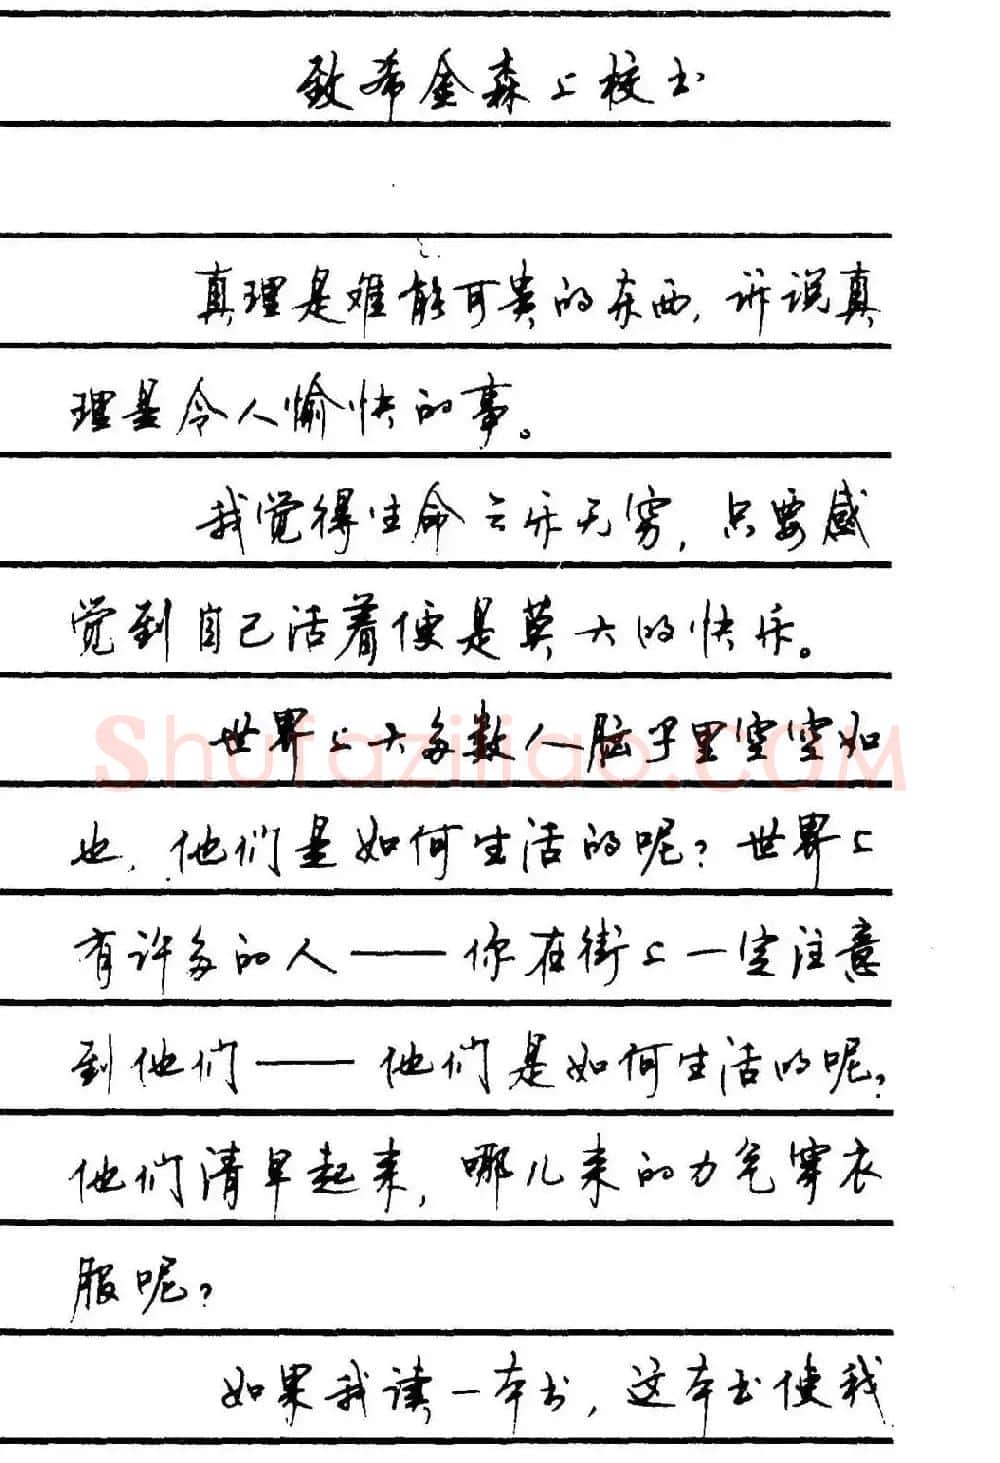 致希金森上校书
真理是难能可贵的东西，讲说真
理是令人愉快的事。
我觉得生命其乐无穷，只要感
觉到自己活着便是莫大的快乐。
世界上大多数人脑子里空空如
也，他们是如何生活的呢？世界上
有许多的人——你在街上一定注意
到他们——他们是如何生活的呢？
他们清早起来，哪儿来的力气穿衣
服呢？
如果我读一本书，这本书使我
Shufaziliao.com